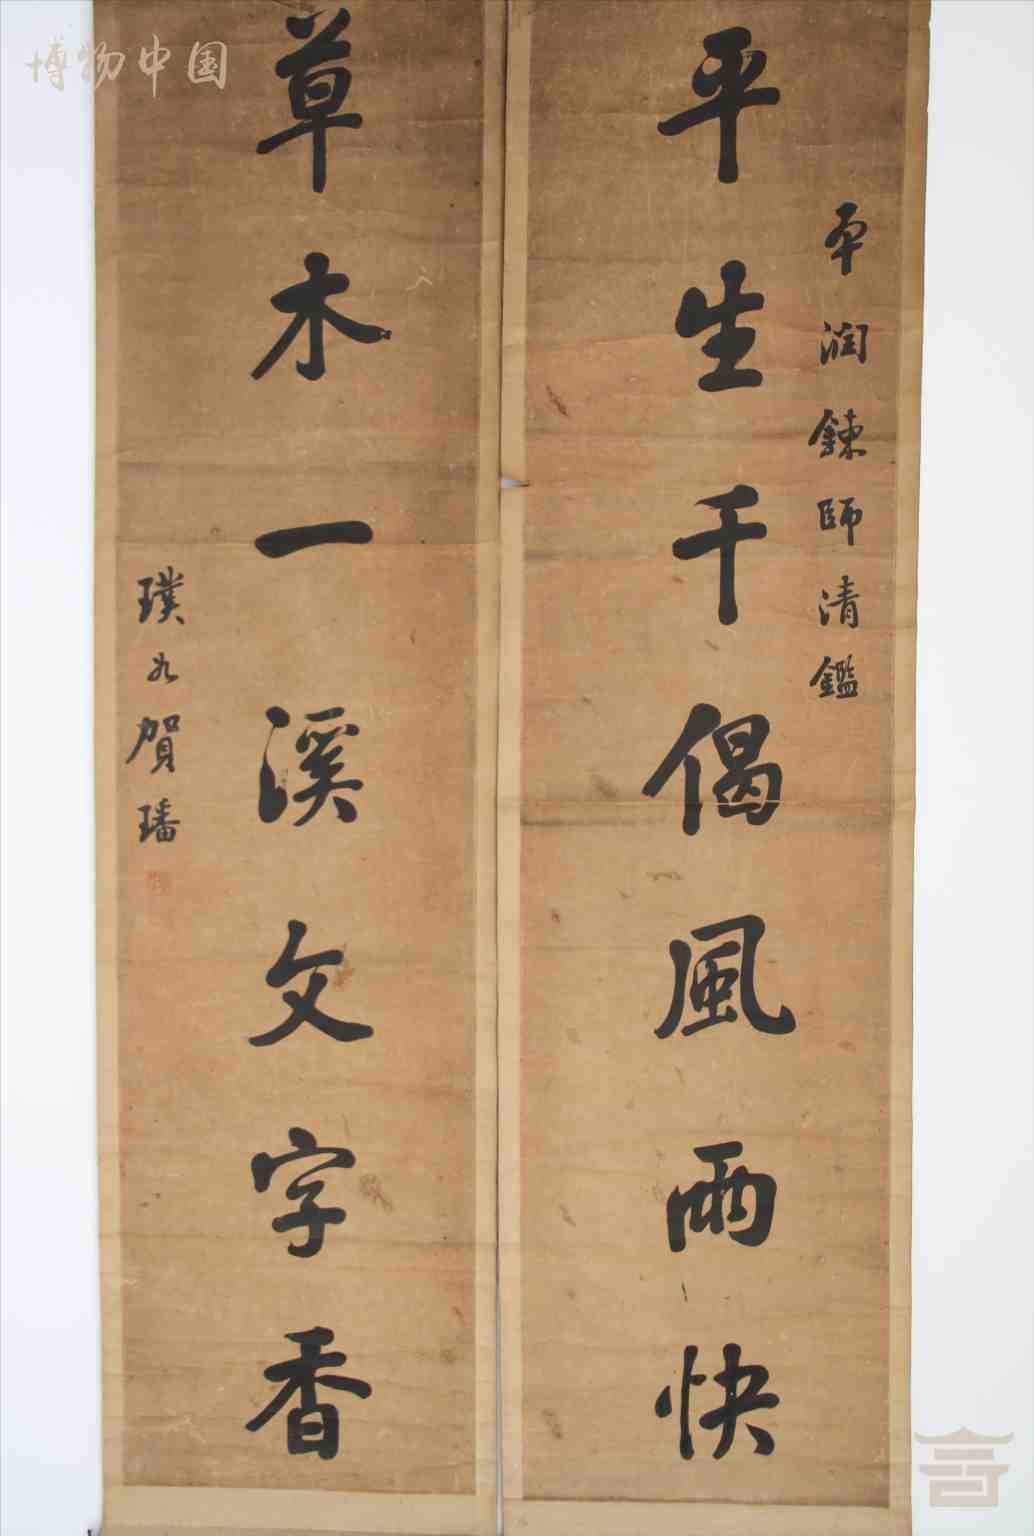 博物中国
平润鍊師清鑑
平生千偈風雨快
草木一溪文字香
璞如賀璠